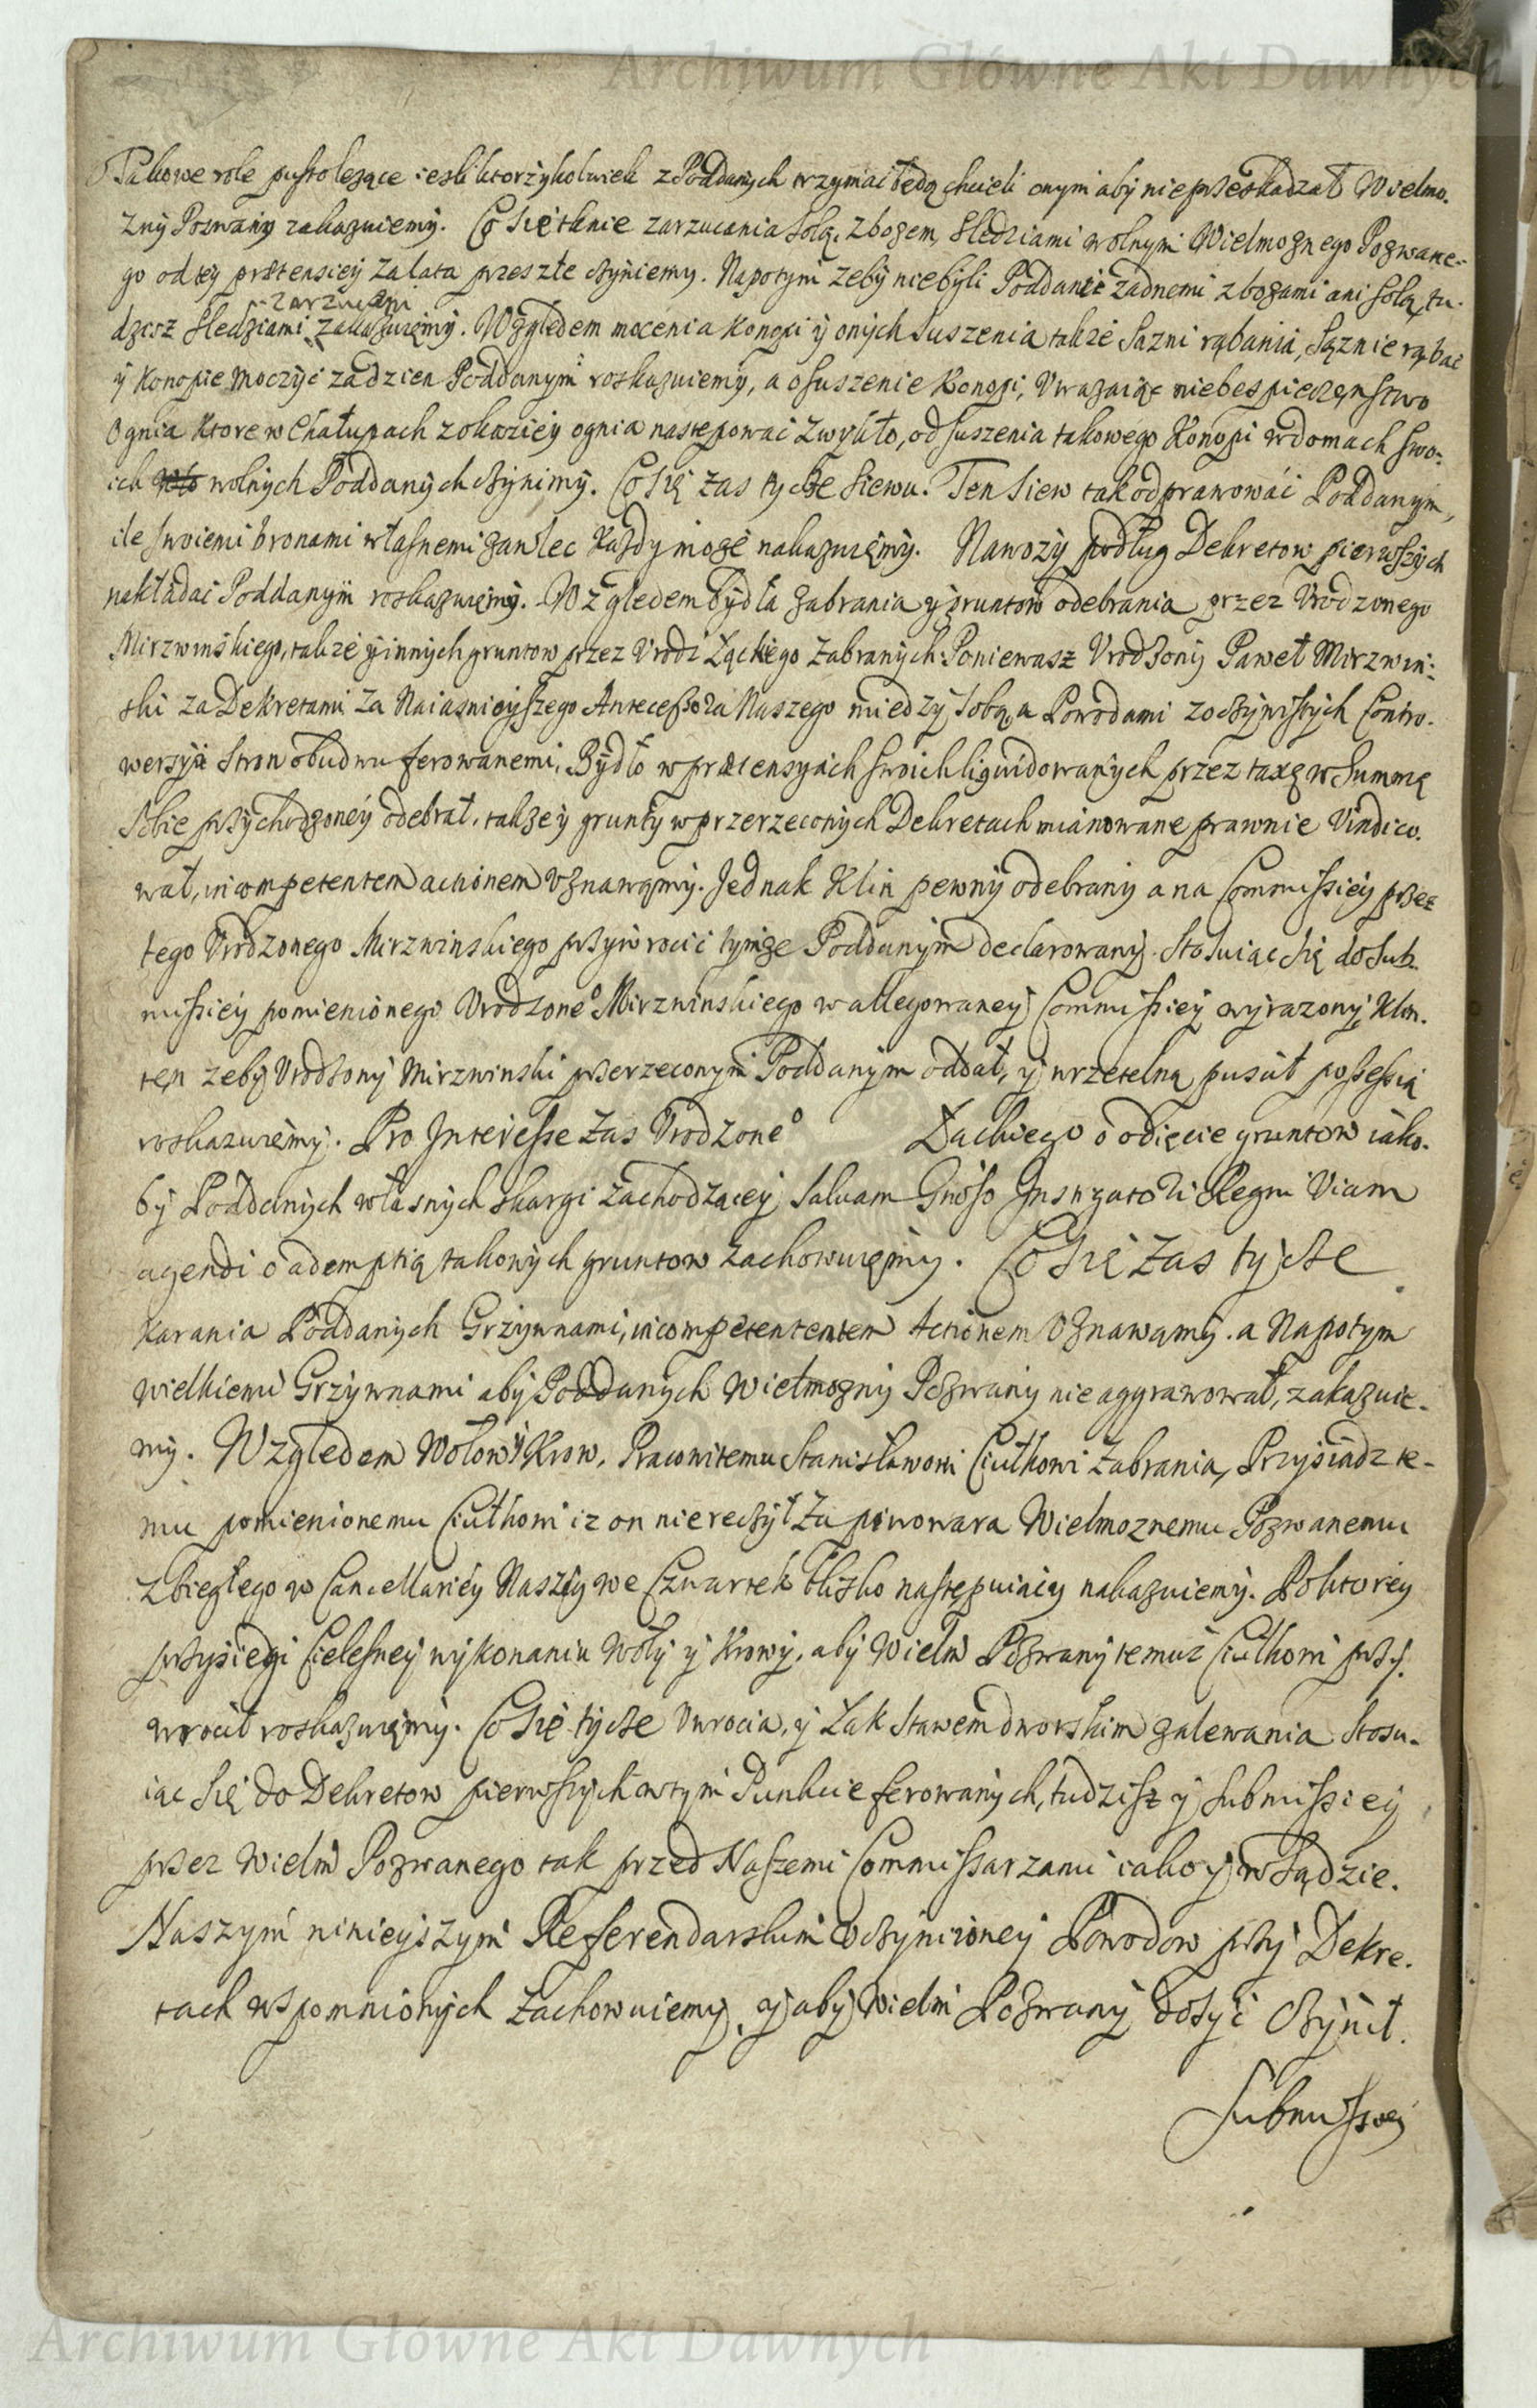 Archiwum Główne Akt Dawnych
Takowe role pusto lezące iesli ktorzykolwiek z Poddanych trzymac będą chcieli onym aby nie przeszkadzał Wielmo-
zny Pozwany zakazuiemy. Co się tknie zarzucania solą, zbozem, sledziami wolnym Wielmoznego Pozwane-
go od tey prætensiey za lata przeszłe czyniemy. Napotym zeby niebyli Poddanie zadnemi zbozami ani solą, tu-
zarzucani
dziesz sledziami zakazuiemy. Względem moczenia Konopi y onych suszenia także Sazni rąbania, Sąznie rąbac
y Konopie moczyć za dzien Poddanym roskazuiemy, a o suszenie Konopi, Uwazaiąc niebespieczęnstwo
Ognia ktore w Chałupach z okaziey ognia następowac zwykło, od suszenia takowego Konopi w domach swo-
ich wolnych Poddanych czynimy. Co się zas tycze siewu. Ten siew tak odprawowác Poddanym,
ile swoiemi bronami własnemi zawlec kazdy może nakazuięmy. Nawozy podług Dekretow pierwszych
nakładac Poddanym roskazuięmy. Względem bydła zabrania y gruntow odebrania przez Urodzonego
Mirzwinskiego, także y innych gruntow przez Urodz Łąckiego zabranych. Poniewasz Urodzony Paweł Mirzwin-
ski za Dekretami za Naiasnieyszego Antecessora Naszego między sobą a Powodami z oczywistych Contro-
wersyi stron obudwu ferowanemi, Bydło w prætensyach swoich ligwidowanych przez taxę w summę
sobie przychodzoney odebrał, także y grunty w przerzeconych Dekretach mianowane prawnie Vindico-
wał, incompetentem actionem uznawamy. Jednak Klin pewny odebrany a na Commissiey przez
tego Urodzonego Mirzwinskiego przywrocić tymze Poddanym declarowany. Stosuiąc się do sub-
missiey pomienionego Urodzone° Mirzwinskiego w allegowaney Commissiey wyrazony, Klin
ten zeby Urodzony Mirzwinski przerzeconym Poddanym oddał, y w rzetelną puscił possessią
roskazuięmy. Pro Interesse zas Urodzone° Lackiego o odięcie gruntow iako-
by Poddanych własnych skargi zachodzącey, salvam Gnoso Instigatori Regni Viam
agendi o ademptią takowych gruntow zachowuięmy. Co się zas tycze
karania Poddanych Grzywnami, incompetentem Actionem uznawamy. a Napotym
wielkiemi Grzywnami aby Poddanych Wielmozny Pozwany nie aggrawował, zakazuie-
my. Względem Wołow y Krow, Pracowitemu Stanisławowi Ciułkowi zabrania, Przysiądz te-
mu pomienionemu Ciułkowi iz on nie ręczył za piwowara Wielmoznemu Pozwanemu
zbiegłego w Cancellariey Naszey we Czwartek blisko następuiący nakazuiemy. Po ktorey
przysięgi cielesney wykonaniu Woły y Krowy, aby Wielm Pozwany temuz Ciułkowi przy-
wrocił roskazuięmy. Co się tycze Uwrocia, y Łąk Stawem dworskim zalewania Stosu-
iąc się do Dekretow pierwszych w tym Punkcie ferowanych, tudzisz y submissiey
przez Wielm Pozwanego tak przed Naszemi Commissarzami iako y w sądzie
Naszym ninieyszym Referendarskim uczynioney Powodow przy Dekre-
tach wspomnionych zachowuiemy, y aby Wielm Pozwany dosyć czynił
Submissiey
Archiwum Główne Akt Dawnych